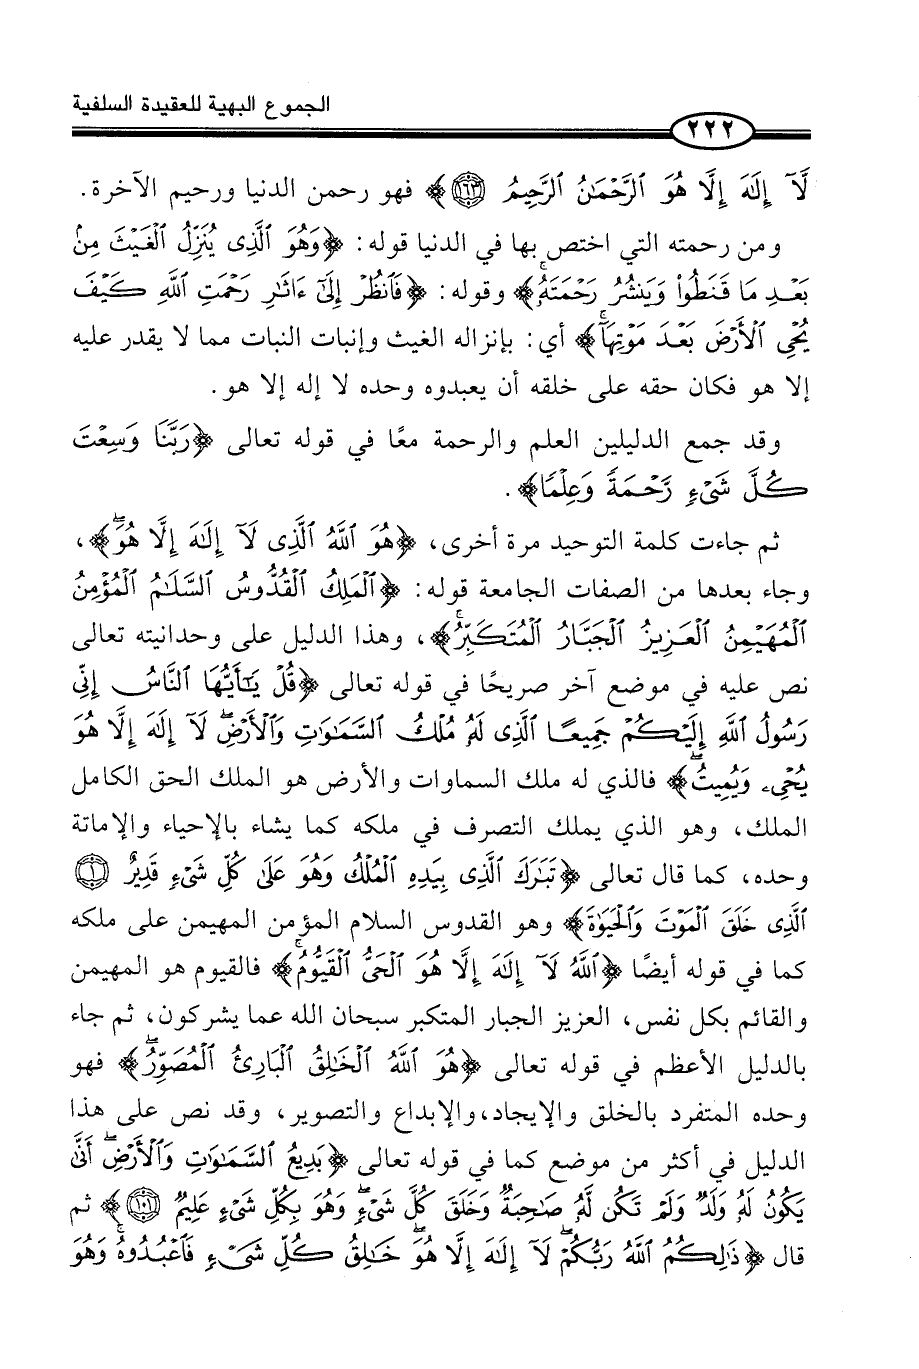 الجموع البهية للعقيدة السلفية
٢٢٢
لَآ إِلَٰهَ إِلَّا هُوَ ٱلرَّحْمَٰنُ ٱلرَّحِيمُ ﴿١٦٣﴾ فهو رحمن الدنيا ورحيم الآخرة.
ومن رحمته التي اختص بها في الدنيا قوله: ﴿وَهُوَ ٱلَّذِى يُنَزِّلُ ٱلْغَيْثَ مِنۢ
بَعْدِ مَا قَنَطُوا۟ وَيَنشُرُ رَحْمَتَهُۥۚ﴾ وقوله: ﴿فَٱنظُرْ إِلَىٰٓ ءَاثَٰرِ رَحْمَتِ ٱللَّهِ كَيْفَ
يُحْىِ ٱلْأَرْضَ بَعْدَ مَوْتِهَآۚ﴾ أي: بإنزاله الغيث وإنبات النبات مما لا يقدر عليه
إلا هو فكان حقه على خلقه أن يعبدوه وحده لا إله إلا هو.
وقد جمع الدليلين العلم والرحمة معًا في قوله تعالى ﴿رَبَّنَا وَسِعْتَ
كُلَّ شَىْءٍ رَّحْمَةً وَعِلْمًا﴾.
ثم جاءت كلمة التوحيد مرة أخرى، ﴿هُوَ ٱللَّهُ ٱلَّذِى لَآ إِلَٰهَ إِلَّا هُوَۖ﴾،
وجاء بعدها من الصفات الجامعة قوله: ﴿ٱلْمَلِكُ ٱلْقُدُّوسُ ٱلسَّلَٰمُ ٱلْمُؤْمِنُ
ٱلْمُهَيْمِنُ ٱلْعَزِيزُ ٱلْجَبَّارُ ٱلْمُتَكَبِّرُۚ﴾، وهذا الدليل على وحدانيته تعالى
نص عليه في موضع آخر صريحًا في قوله تعالى ﴿قُلْ يَٰٓأَيُّهَا ٱلنَّاسُ إِنِّى
رَسُولُ ٱللَّهِ إِلَيْكُمْ جَمِيعًا ٱلَّذِى لَهُۥ مُلْكُ ٱلسَّمَٰوَٰتِ وَٱلْأَرْضِۖ لَآ إِلَٰهَ إِلَّا هُوَ
يُحْىِۦ وَيُمِيتُۖ﴾ فالذي له ملك السماوات والأرض هو الملك الحق الكامل
الملك، وهو الذي يملك التصرف في ملكه كما يشاء بالإحياء والإماتة
وحده، كما قال تعالى ﴿تَبَٰرَكَ ٱلَّذِى بِيَدِهِ ٱلْمُلْكُ وَهُوَ عَلَىٰ كُلِّ شَىْءٍ قَدِيرٌ ﴿١﴾
ٱلَّذِى خَلَقَ ٱلْمَوْتَ وَٱلْحَيَوٰةَ﴾ وهو القدوس السلام المؤمن المهيمن على ملكه
كما في قوله أيضًا ﴿ٱللَّهُ لَآ إِلَٰهَ إِلَّا هُوَ ٱلْحَىُّ ٱلْقَيُّومُۚ﴾ فالقيوم هو المهيمن
والقائم بكل نفس، العزيز الجبار المتكبر سبحان الله عما يشركون، ثم جاء
بالدليل الأعظم في قوله تعالى ﴿هُوَ ٱللَّهُ ٱلْخَٰلِقُ ٱلْبَارِئُ ٱلْمُصَوِّرُۖ﴾ فهو
وحده المتفرد بالخلق والإيجاد،والإبداع والتصوير، وقد نص على هذا
الدليل في أكثر من موضع كما في قوله تعالى ﴿بَدِيعُ ٱلسَّمَٰوَٰتِ وَٱلْأَرْضِۖ أَنَّىٰ
يَكُونُ لَهُۥ وَلَدٌ وَلَمْ تَكُن لَّهُۥ صَٰحِبَةٌۖ وَخَلَقَ كُلَّ شَىْءٍۖ وَهُوَ بِكُلِّ شَىْءٍ عَلِيمٌ ﴿١٠١﴾﴾ ثم
قال ﴿ذَٰلِكُمُ ٱللَّهُ رَبُّكُمْۖ لَآ إِلَٰهَ إِلَّا هُوَۖ خَٰلِقُ كُلِّ شَىْءٍ فَٱعْبُدُوهُۚ وَهُوَ